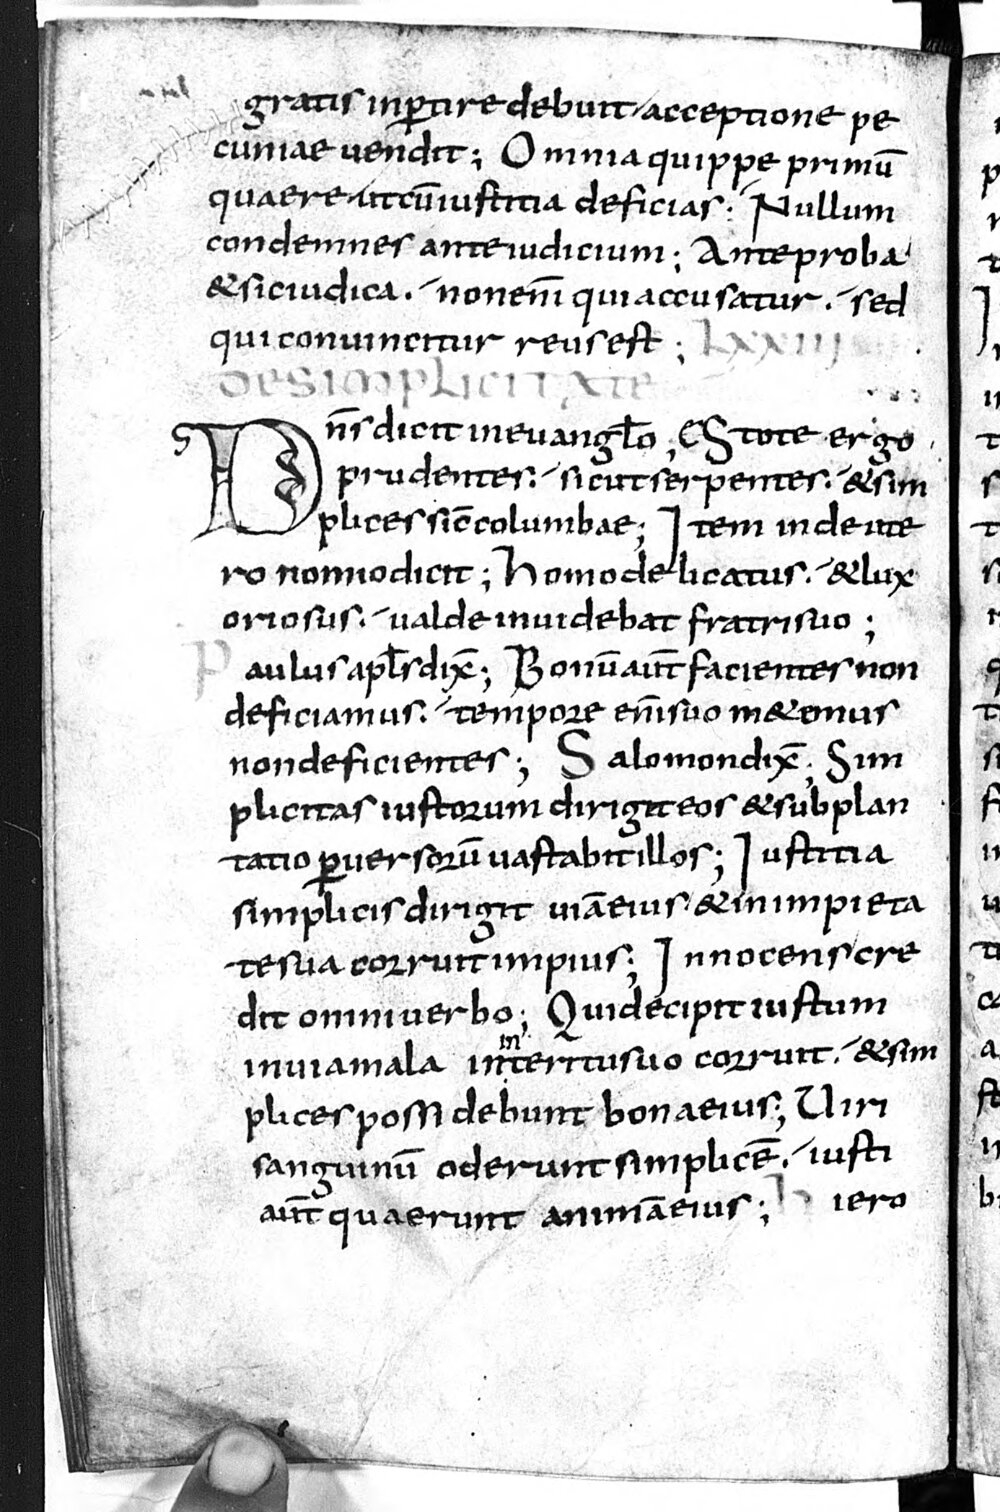 gratis inꝑtire debuit acceptione pe
cuniae uendit; Omnia quippe primū
quaere ut cū iustitia deficias: Nullum
condemnes ante iudicium; Ante proba
& sic iudica. non eni̅ qui accusatur. sed
qui conuincitur reus est; LXXIII
DE SIMPLICITATE
Dn̄s dicit in euanglo̅, EStote ergo
prudentes. sicut serpentes. & sim
plices sic̄ columbae; Item inde ute
ro nonno dicit; homo delicatus. & lux
oriosus. ualde inuidebat fratri suo;
Paulus apls̄ dix̄; Bonū aut̄ facientes non
deficiamus. tempore eni̅ suo m&emus
non deficientes; Salomon dix̄; Sim
plicitas iustorum dirigit eos & subplan
tatio ꝑuersorū uastabit illos; Iustitia
simplicis dirigit uiā eius & in impieta
te sua corruit impius; Innocens cre
dit omni uerbo; Qui decipit iustum
in uia mala in interitu suo corruit. & sim
plices possidebunt bona eius; Uiri
sanguinū oderunt simplicē. iusti
aut̄ quaerunt animā eius; hiero